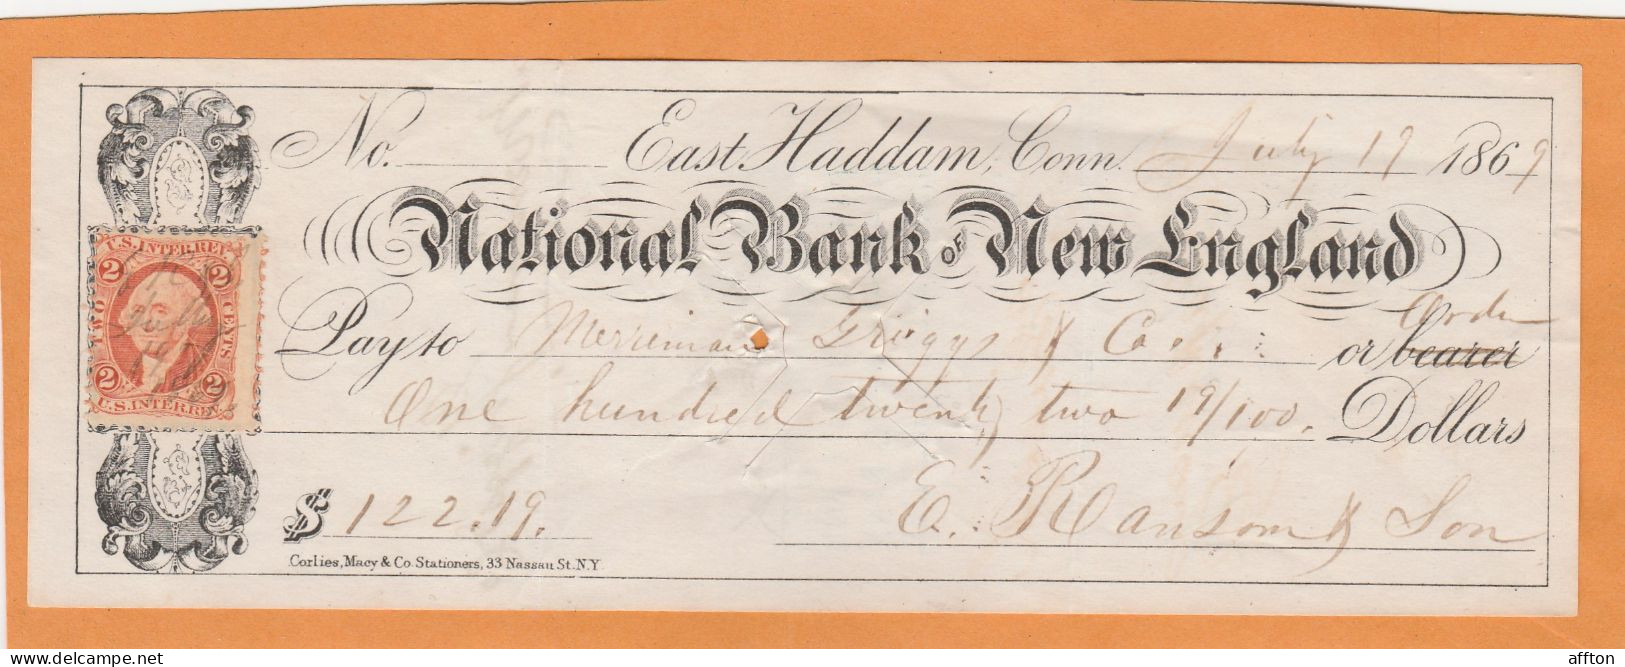 No. East Haddam, Conn. July 19 1869
National Bank of New England
Order
Pay to Merriman Griggs & Co. or bearer
One hundred twenty two 19/100. Dollars
$ 122.19. E. Ransom & Son
Corlies, Macy & Co. Stationers, 33 Nassau St. N.Y.
U.S. INTER. REV.
2 2
TWO CENTS
July
19
2 2
U.S. INTER. REV.
affton
delcampe.net